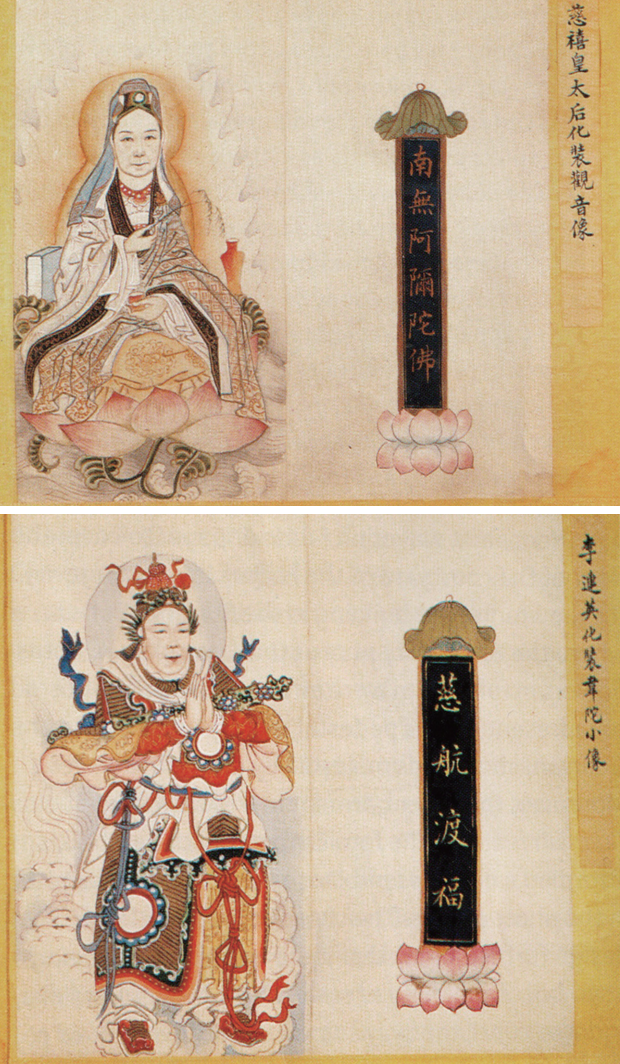 慈禧皇太后化裝觀音像
南無阿彌陀佛
李連英化裝韋陀小像
慈航渡福